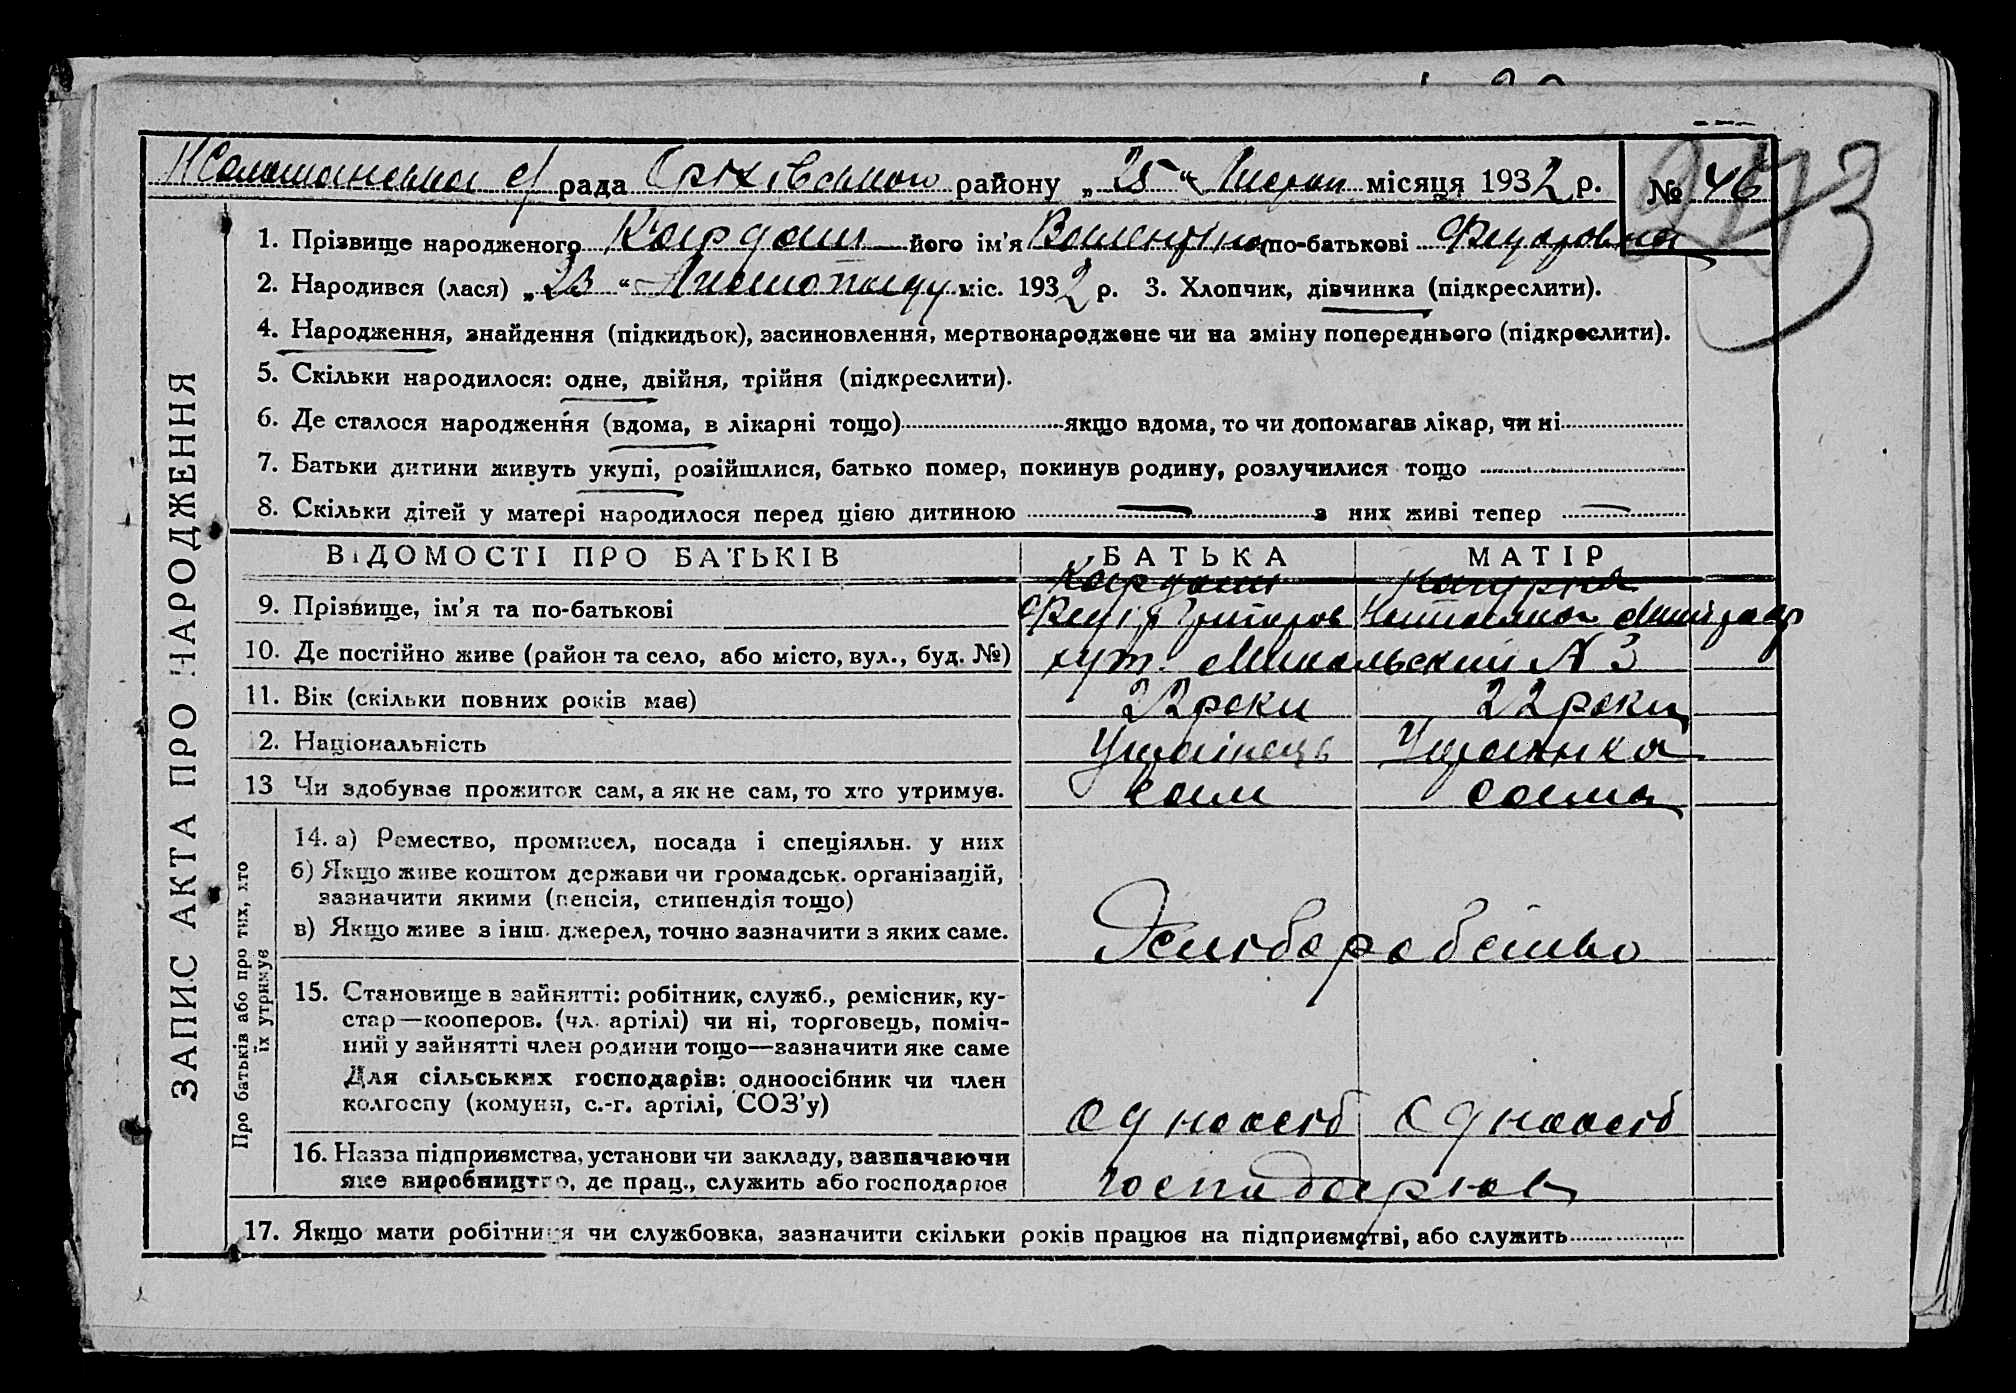 с/рада Оріхівського району „25“ Листоп місяця 1932 р. № 46
1. Прізвище народженого Кардаш його ім'я Валентина по-батькові Федоровна
2. Народився (лася) „23“ Листопаду міс. 1932 р. 3. Хлопчик, дівчинка (підкреслити).
4. Народження, знайдення (підкидьок), засиновлення, мертвонароджене чи на зміну попереднього (підкреслити).
5. Скільки народилося: одне, двійня, трійня (підкреслити).
6. Де сталося народження (вдома, в лікарні тощо) якщо вдома, то чи допомагав лікар, чи ні
7. Батьки дитини живуть укупі, розійшлися, батько помер, покинув родину, розлучилися тощо
8. Скільки дітей у матері народилося перед цією дитиною — з них живі тепер —
ЗАПИС АКТА ПРО НАРОДЖЕННЯ
ВІДОМОСТІ ПРО БАТЬКІВ БАТЬКА МАТІР
Кардаш
9. Прізвище, ім'я та по-батькові Федір Григоров
10. Де постійно живе (район та село, або місто, вул., буд. №) хут. Микольский № 3
11. Вік (скільки повних років має) 22 роки 22 роки
12. Національність Українець Українка
13 Чи здобував прожиток сам, а як не сам, то хто утримує. сам сама
Про батьків або про тих, хто
їх утримує
14. а) Ремество, промисел, посада і спеціяльн. у них
б) Якщо живе коштом держави чи громадськ. організацій,
зазначити якими (пенсія, стипендія тощо)
в) Якщо живе з інш. джерел, точно зазначити з яких саме.
Хліборобство
15. Становище в зайнятті: робітник, служб., ремісник, ку-
стар—кооперов. (чл. артілі) чи ні, торговець, поміч-
ний у зайнятті член родини тощо—зазначити яке саме
Для сільських господарів: одноосібник чи член
колгоспу (комуни, с.-г. артілі, СОЗ'у)
одноосіб одноосіб
16. Назва підприємства, установи чи закладу, зазначаючи
яке виробництво, де прац., служить або господарює
17. Якщо мати робітниця чи службовка, зазначити скільки років працює на підприємстві, або служить